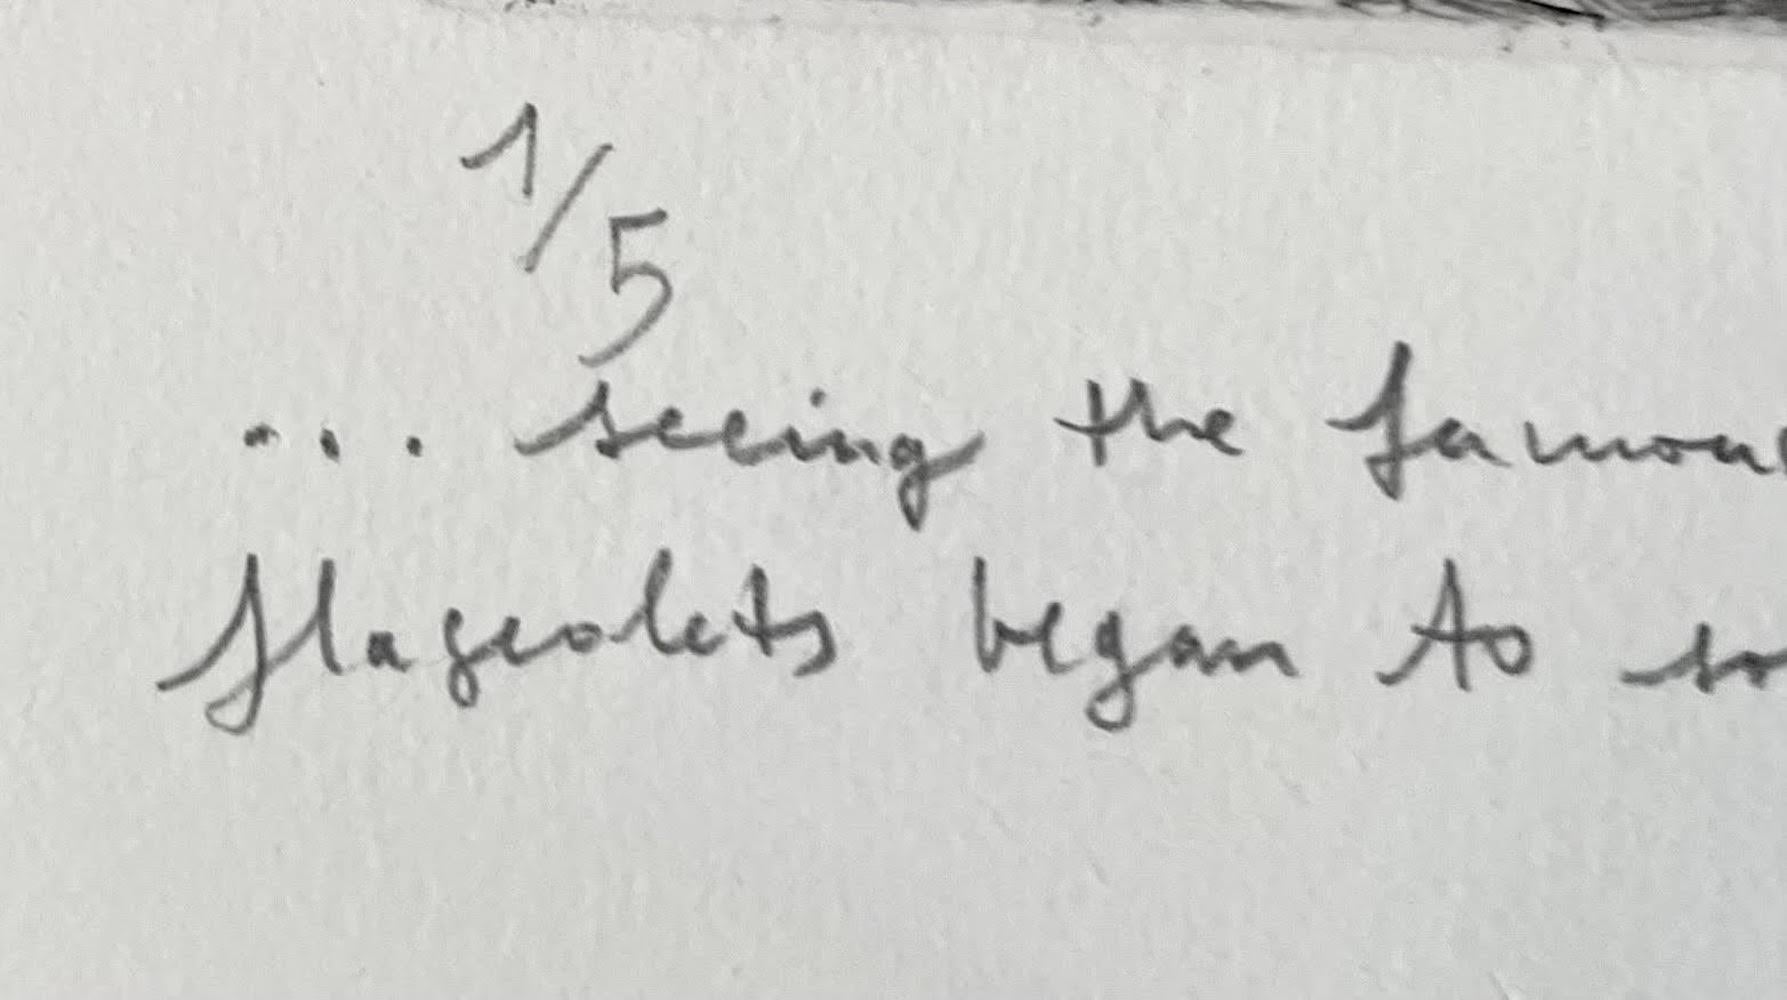 1/5
... seeing the famou
flageolets began to so